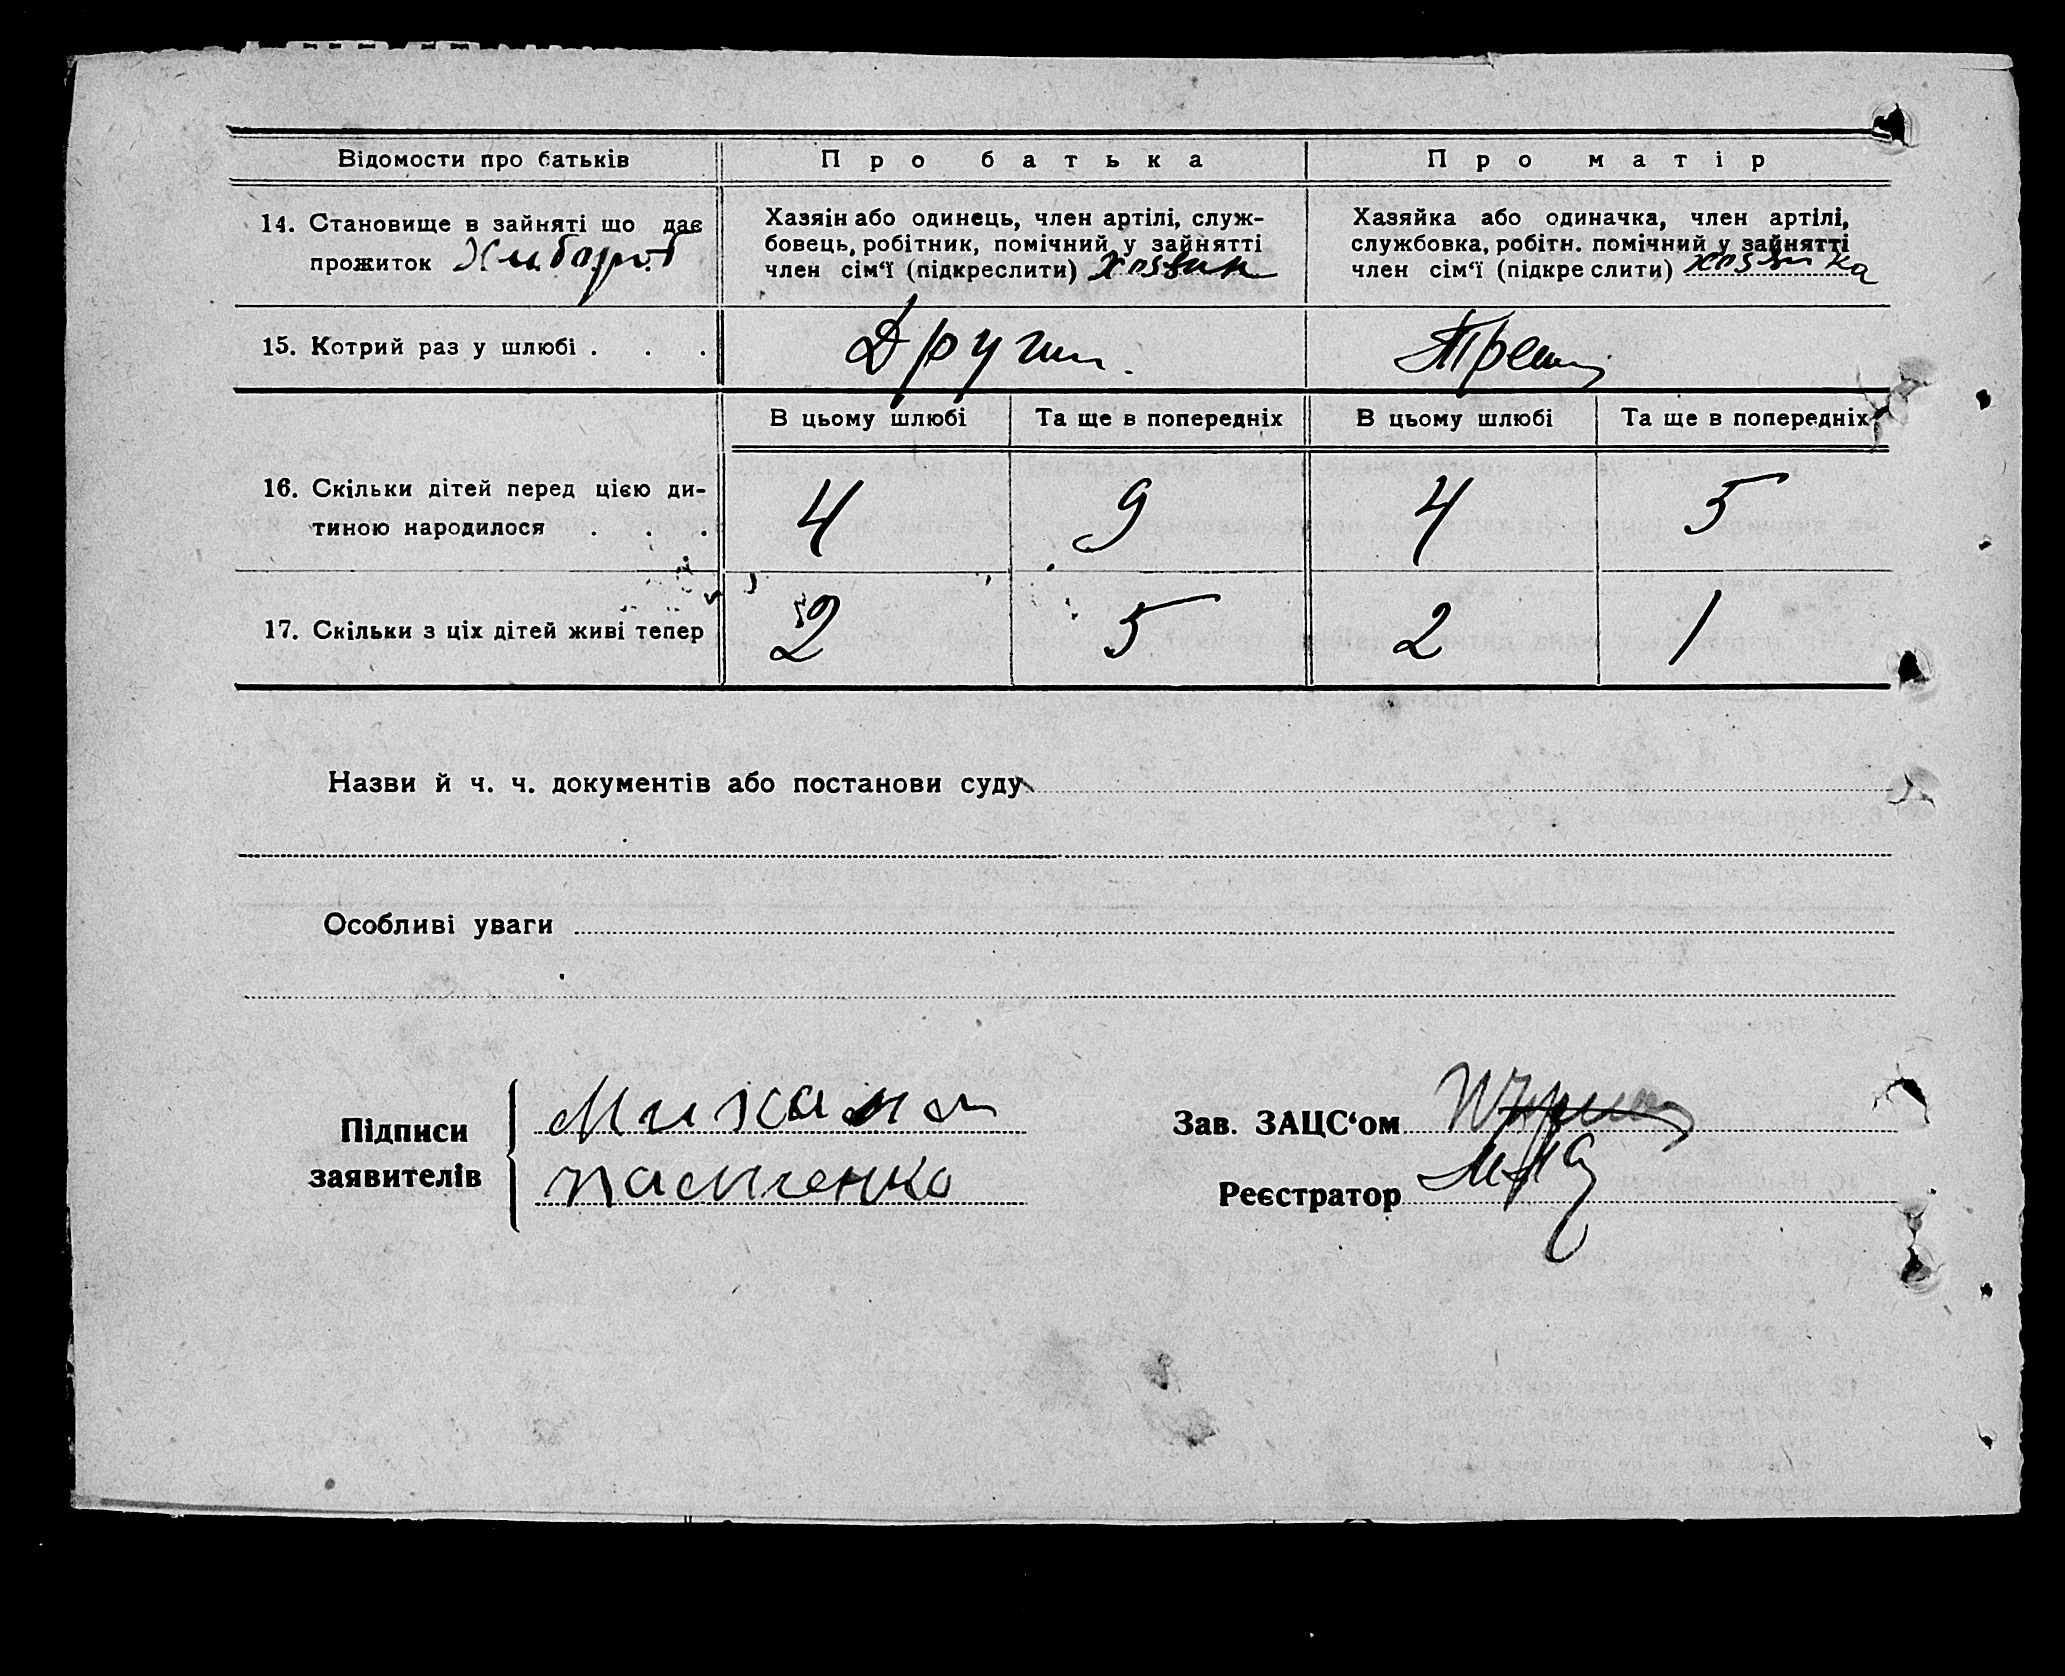 Відомости про батьків Про батька Про матір
14. Становище в зайняті що дає
прожиток Хлибороб
Хазяїн або одинець, член артілі, служ-
бовець, робітник, помічний у зайнятті
член сім'ї (підкреслити) хозяин
Хазяйка або одиначка, член артілі,
службовка, робітн. помічний у зайнятті
член сім'ї (підкреслити) хозяйка
15. Котрий раз у шлюбі . . . Други Трети
В цьому шлюбі Та ще в попередніх В цьому шлюбі Та ще в попередніх
16. Скільки дітей перед цією ди-
тиною народилося . . . 4 9 4 5
17. Скільки з ціх дітей живі тепер 2 5 2 1
Назви й ч. ч. документів або постанови суду
Особливі уваги
Підписи
заявителів
Зав. ЗАЦС'ом
Реєстратор